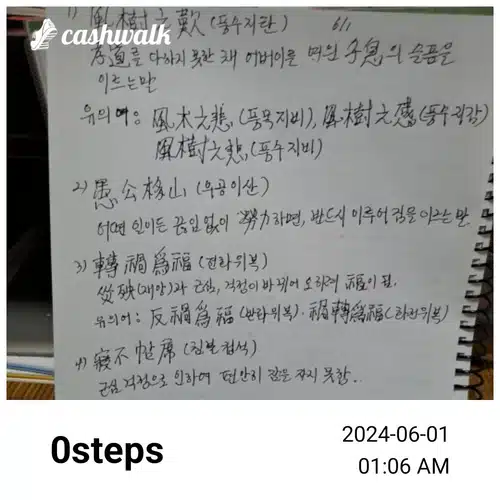 cashwalk
1) 風樹之歎 (풍수지탄) 6/1
孝道를 다하지 못한 채 어버이를 여읜 子息의 슬픔을
이르는 말
유의어: 風木之悲 (풍목지비), 風樹之感 (풍수지감)
風樹之悲 (풍수지비)
2) 愚公移山 (우공이산)
어떤 일이든 끊임없이 努力하면, 반드시 이루어짐을 이르는 말
3) 轉禍爲福 (전화위복)
災殃(재앙)과 근심, 걱정이 바뀌어 오히려 福이 됨.
유의어: 反禍爲福 (반화위복). 禍轉爲福 (화전위복)
4) 寢不 席 (침불 석)
근심 걱정으로 인하여 편안히 잠을 자지 못함..
0steps
2024-06-01
01:06 AM